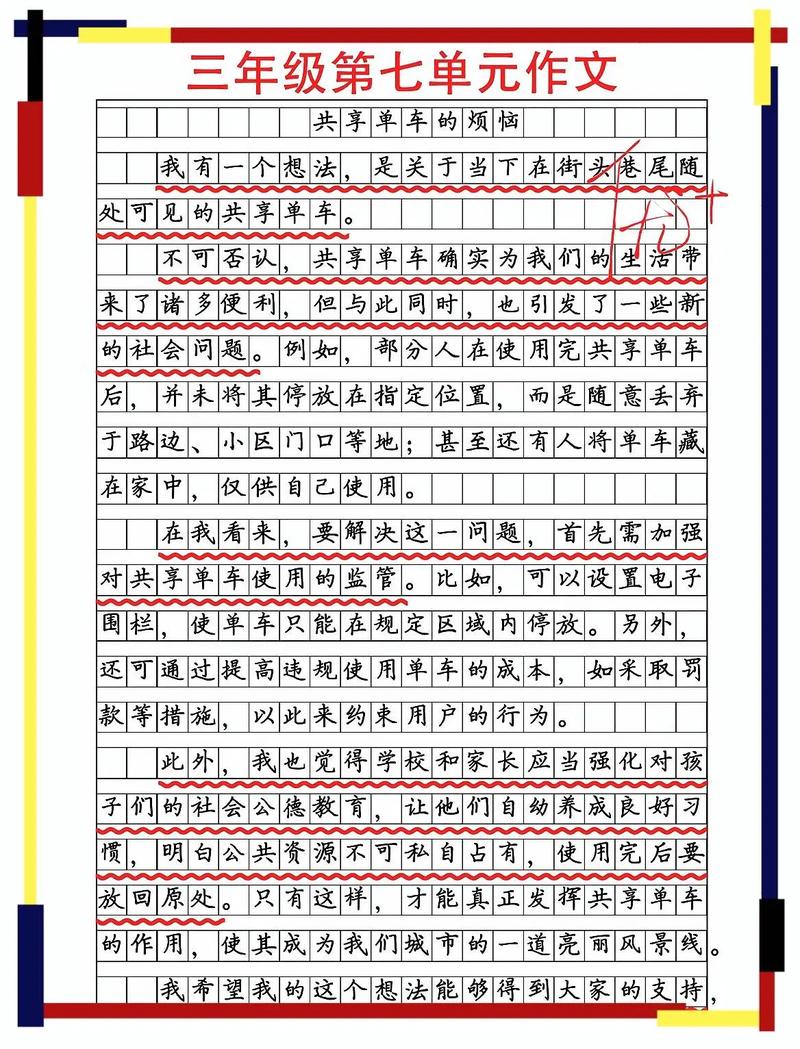 三年级第七单元作文
共享单车的烦恼
我有一个想法，是关于当下在街头巷尾随
处可见的共享单车。
不可否认，共享单车确实为我们的生活带
来了诸多便利，但与此同时，也引发了一些新
的社会问题。例如，部分人在使用完共享单车
后，并未将其停放在指定位置，而是随意丢弃
于路边、小区门口等地；甚至还有人将单车藏
在家中，仅供自己使用。
在我看来，要解决这一问题，首先需加强
对共享单车使用的监管。比如，可以设置电子
围栏，使单车只能在规定区域内停放。另外，
还可通过提高违规使用单车的成本，如采取罚
款等措施，以此来约束用户的行为。
此外，我也觉得学校和家长应当强化对孩
子们的社会公德教育，让他们自幼养成良好习
惯，明白公共资源不可私自占有，使用完后要
放回原处。只有这样，才能真正发挥共享单车
的作用，使其成为我们城市的一道亮丽风景线。
我希望我的这个想法能够得到大家的支持，